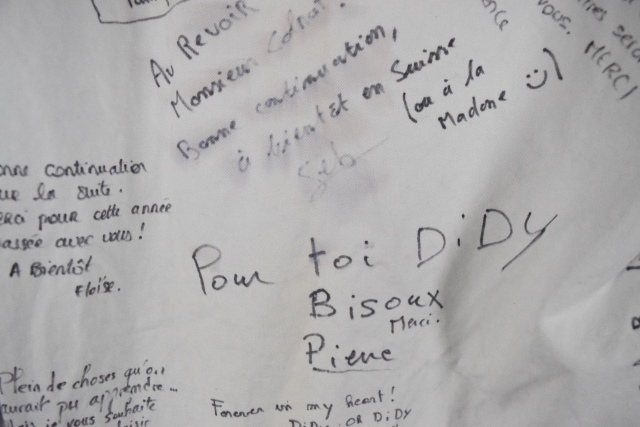 Au Revoir
Monsieur
Bonne continuation,
à bientôt en Suisse
(ou à la
Madone :)
Seb
VOUS.
MERCI
continuation
la suite.
pour cette année
avec vous !
A Bientôt
Floïse.
Pour toi DiDY
Bisoux
Merci.
Pierre
Plein de choses qu'on
pu apprendre...
je vous souhaite
Forever in my heart !
DiDY OR DiDY